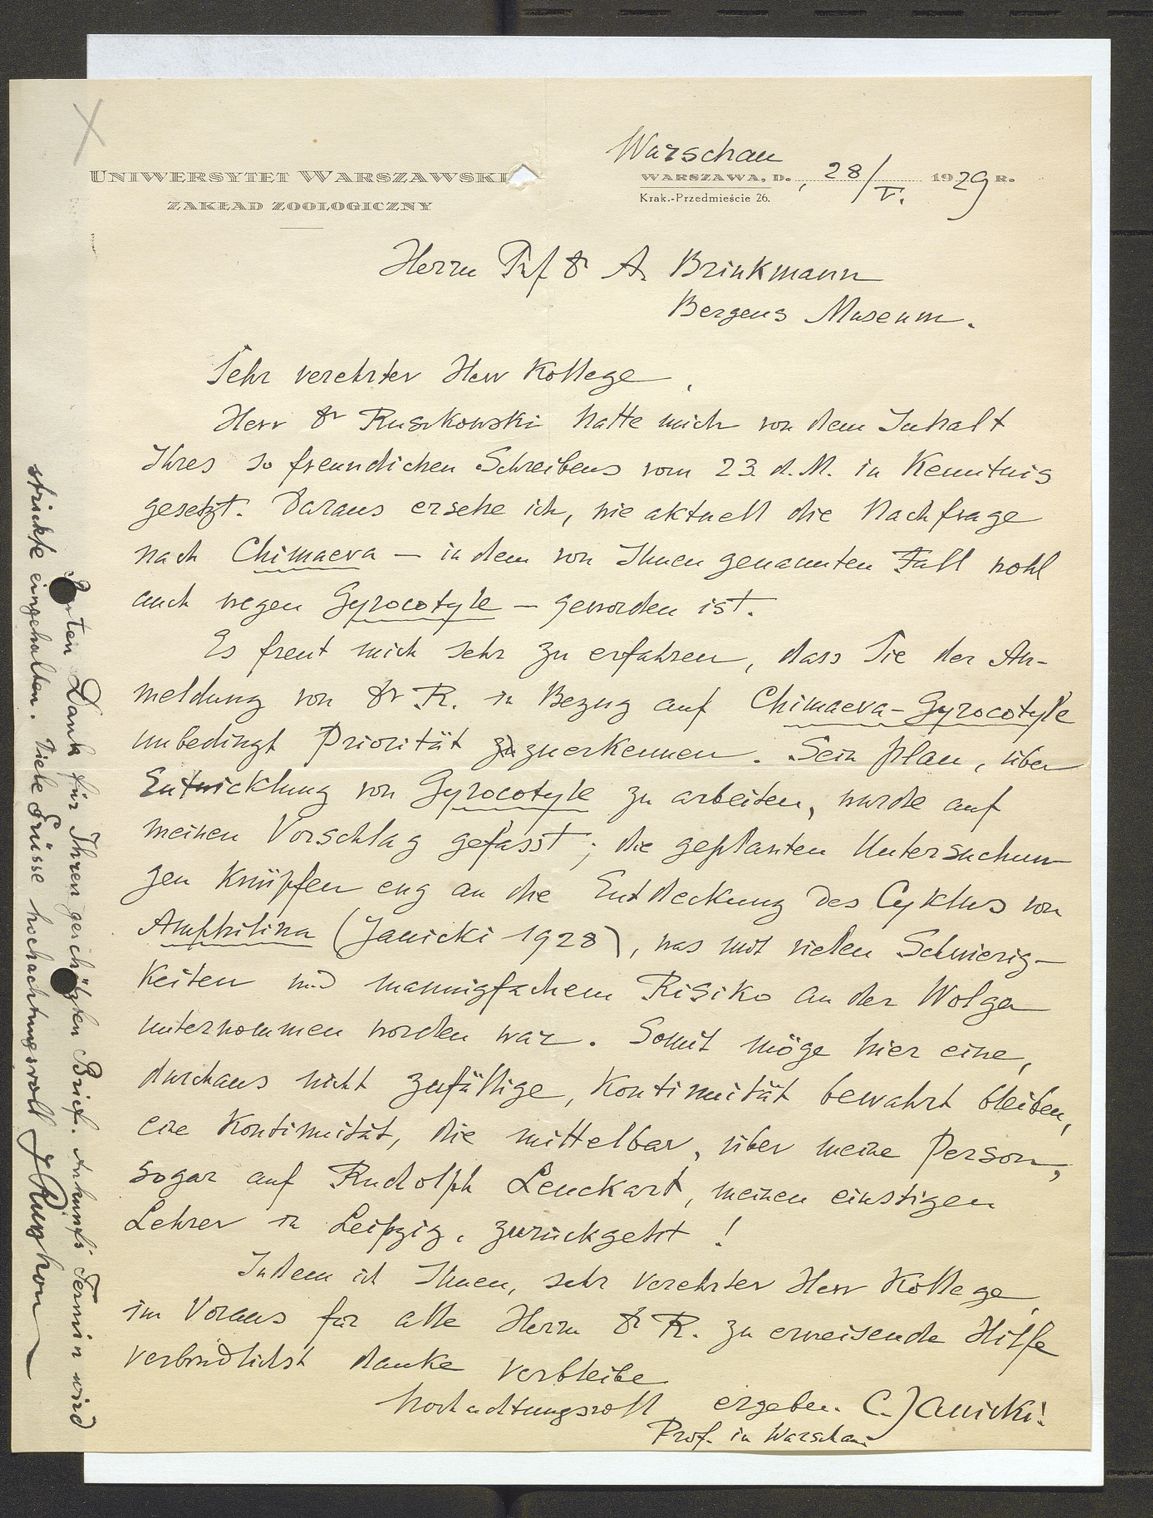 UNIWERSYTET WARSZAWSKI
ZAKŁAD ZOOLOGICZNY
Warschau
WARSZAWA, D. , 28/V. 1929 R.
Krak.-Przedmieście 26.
Herrn Prf Dr A. Brinkmann
Bergens Museum.
Sehr verehrter Herr Kollege,
Herr Dr Ruszkowski hatte mich von dem Inhalt
Ihres so freundlichen Schreibens vom 23 d. M. in Kenntnis
gesetzt. Daraus ersehe ich, wie aktuell die Nachfrage
nach Chimaera — in dem von Ihnen genannten Fall wohl
auch wegen Gyrocotyle — geworden ist.
Es freut mich sehr zu erfahren, dass Sie der An-
meldung von Dr R. in Bezug auf Chimaera-Gyrocotyle
unbedingt Priorität zuzuerkennen. Sein Plan, über
Entwicklung von Gyrocotyle zu arbeiten, wurde auf
meinen Vorschlag gefasst; die geplanten Untersuchun-
gen knüpfen eng an die Entdeckung des Cyklus von
Amphilina (Janicki 1928), was mit vielen Schwierig-
keiten und mannigfachem Risiko an der Wolga
unternommen worden war. Somit möge hier eine,
durchaus nicht zufällige, Kontinuität bewahrt bleiben,
eine Kontinuität, die mittelbar, über meine Person,
sogar auf Rudolph Leuckart, meinen einstigen
Lehrer in Leipzig, zurückgeht!
Indem ich Ihnen, sehr verehrter Herr Kollege,
im Voraus für alle Herrn Dr R. zu erweisende Hilfe
verbindlichst danke verbleibe
hochachtungsvoll ergeben. C. Janicki.
Prof. in Warschau
Besten Dank für Ihren geschätzten Brief. Ankunfts Termin wird
strickte eingehalten. Viele Grüsse hochachtungsvoll J Ruszkow